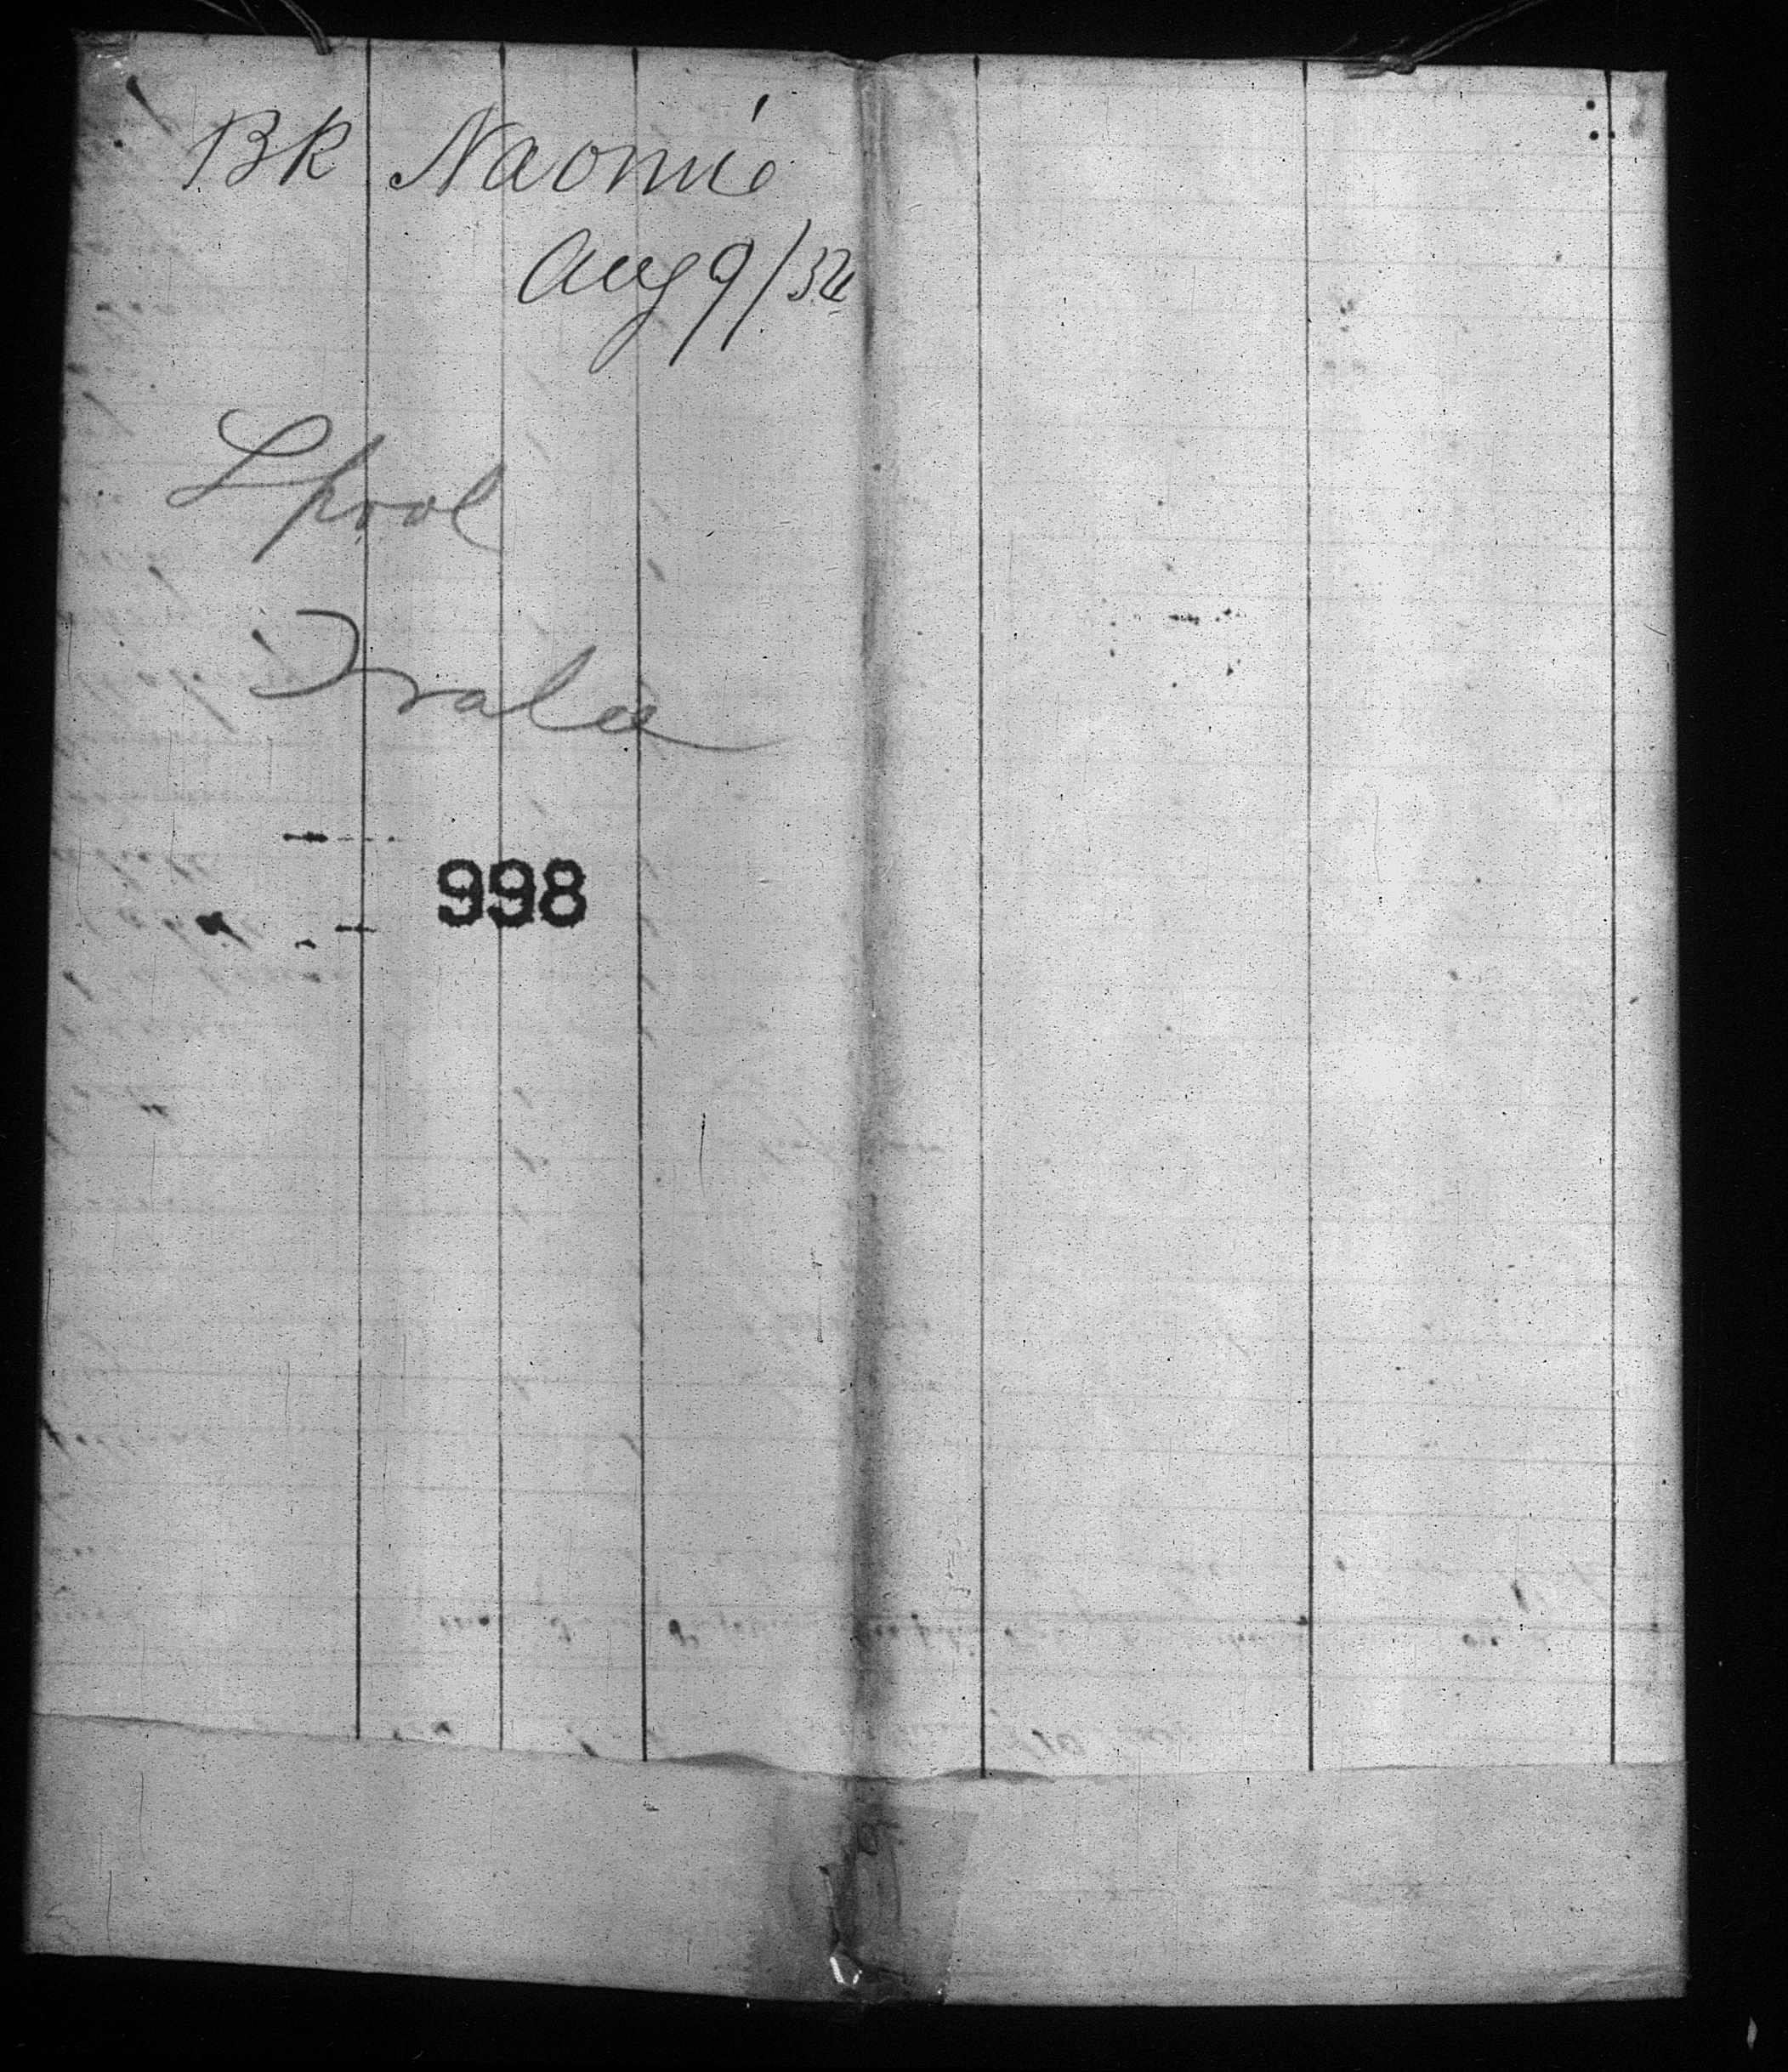 BK Naomie
Aug 9/52
Lpool
Tralee
998